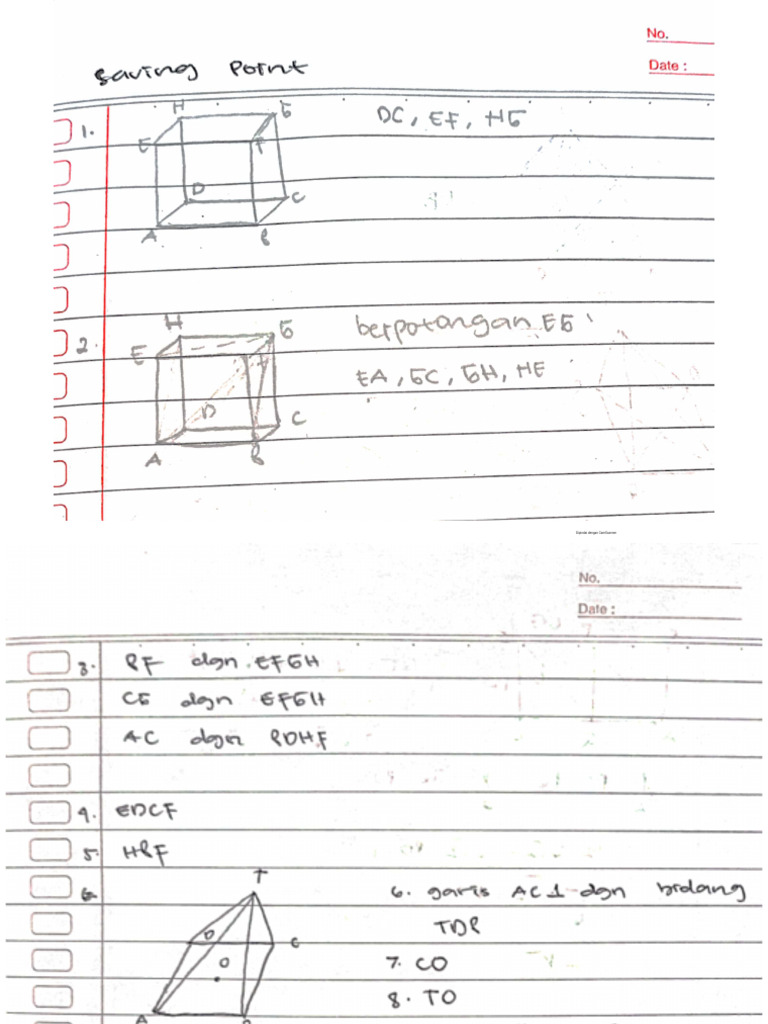 No.
Date :
Saving Point
1.
H G
E F
D C
A B
DC, EF, HG
2.
H G
E F
D C
A B
berpotongan EG
EA, GC, GH, HE
No.
Date :
3. BF dgn EFGH
CG dgn EFGH
AC dgn BDHF
4. EDCF
5. HBF
6
T
D C
O
A B
6. garis AC ⊥ dgn bidang
TDB
7. CO
8. TO